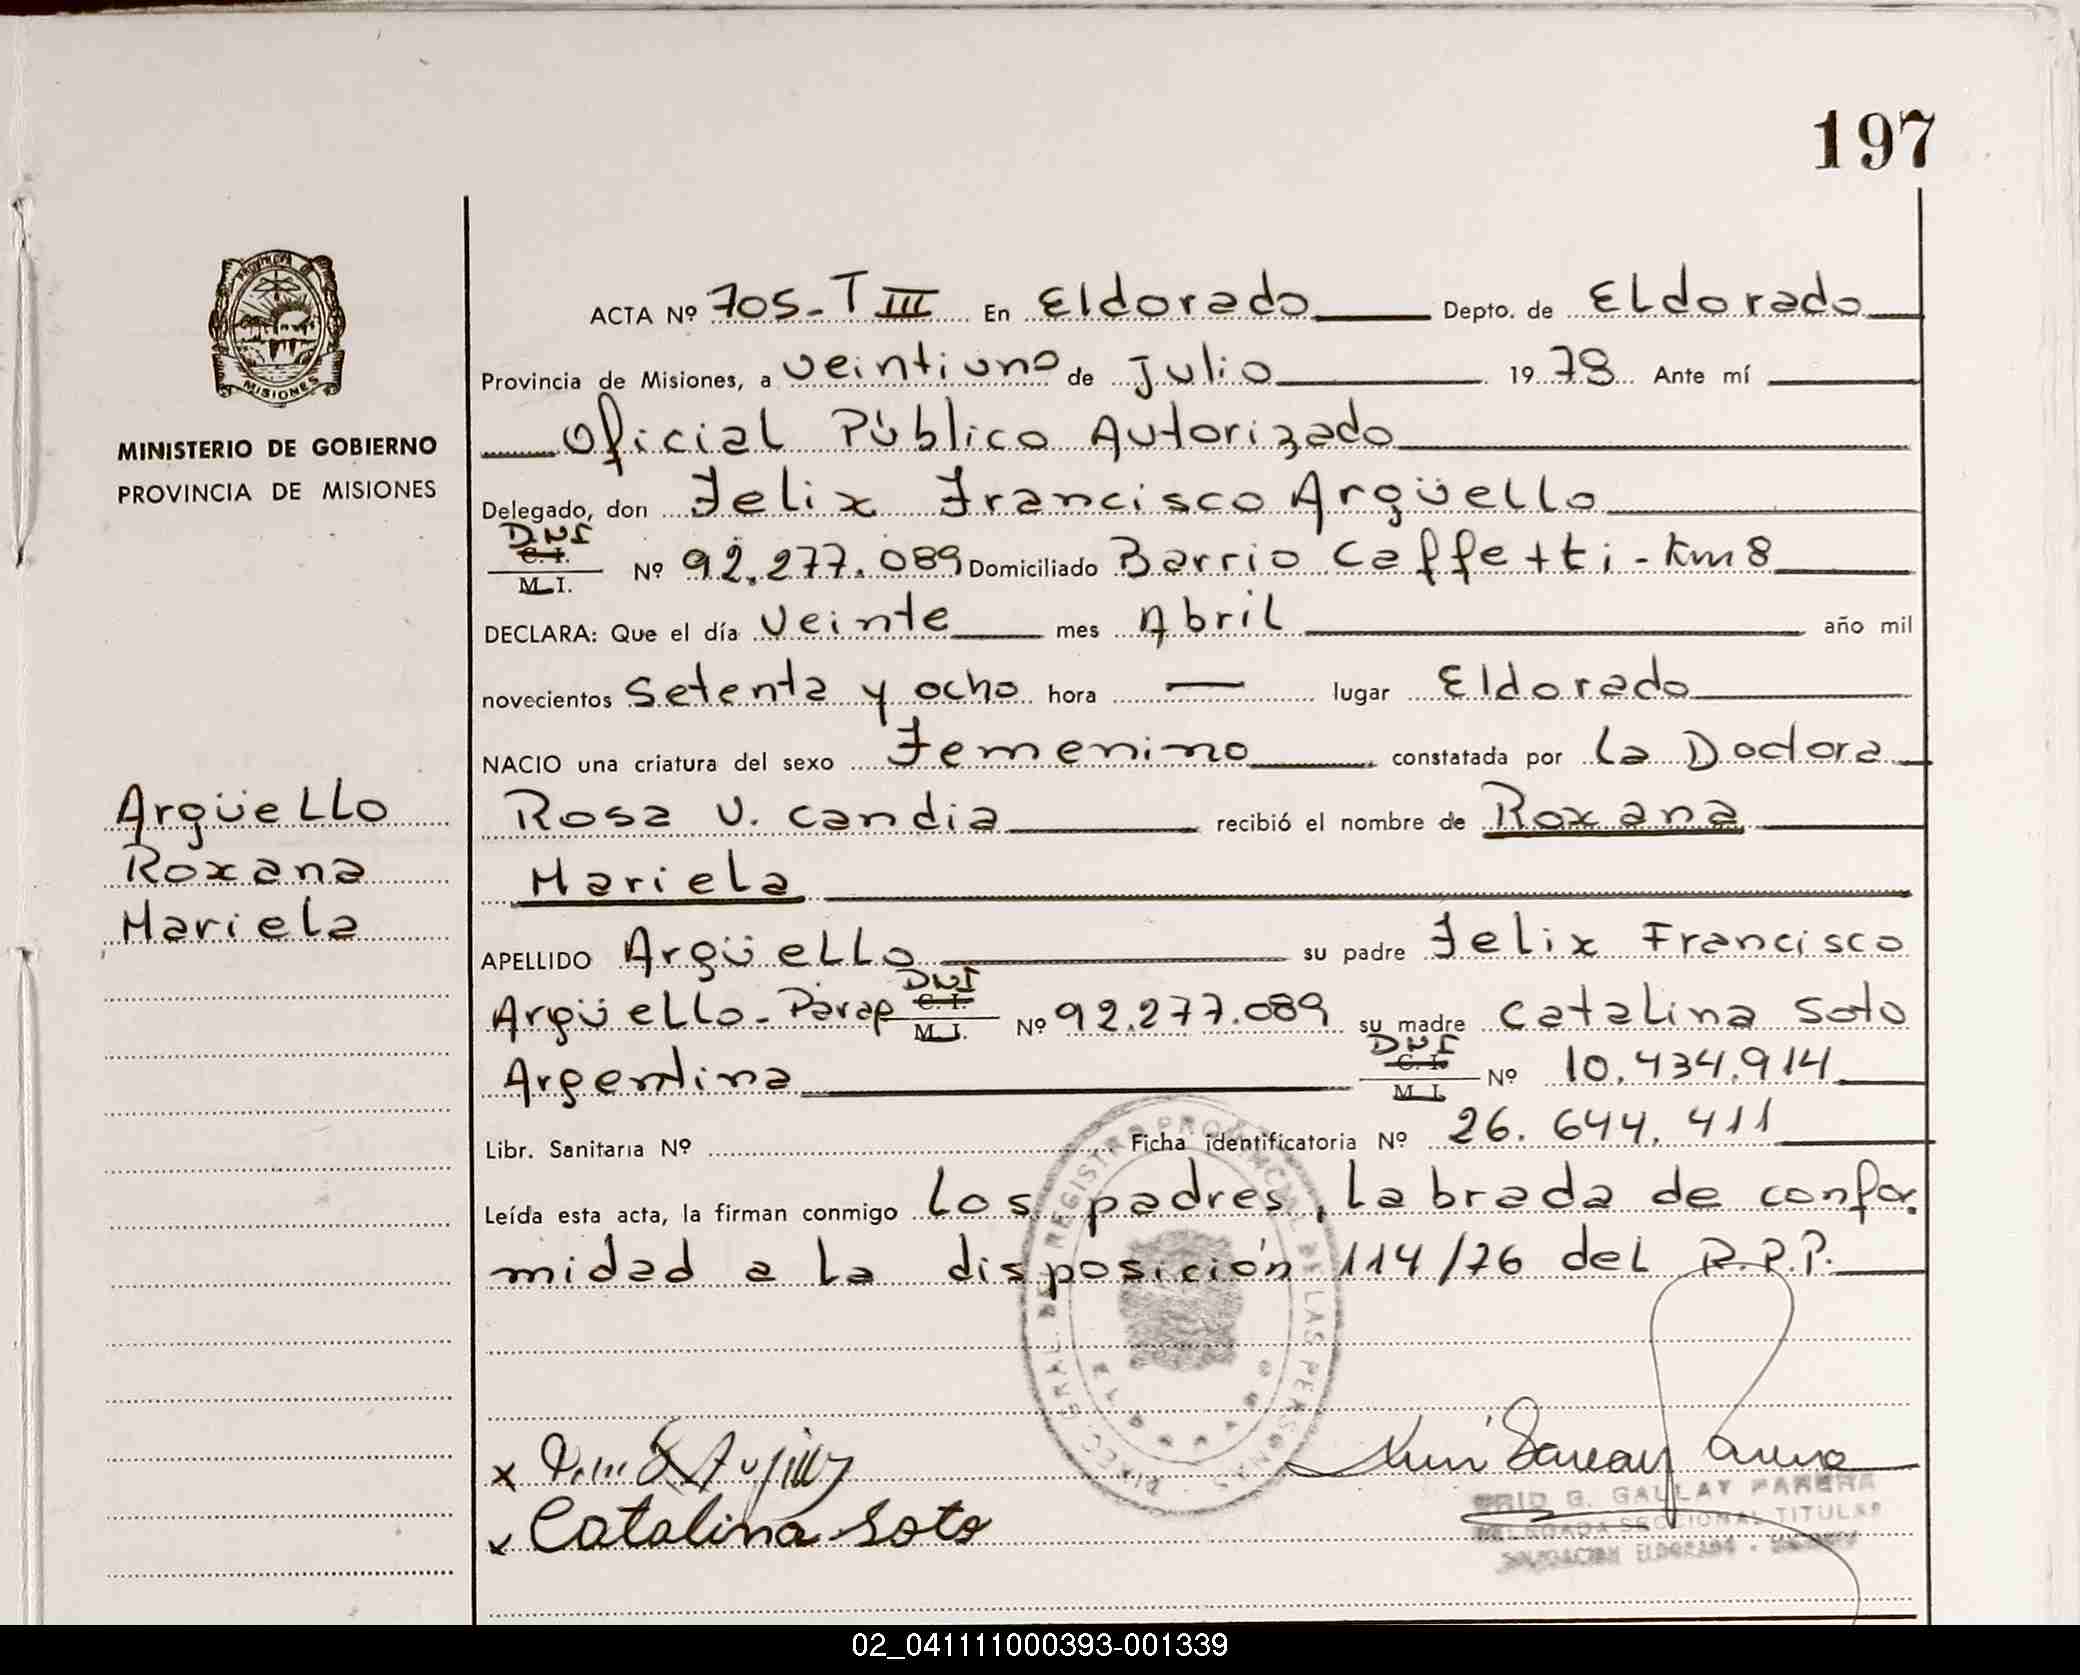 197
PROVINCIA DE
MISIONES
MINISTERIO DE GOBIERNO
PROVINCIA DE MISIONES
Argüello
Roxana
Mariela
ACTA Nº 705-T III En Eldorado Depto. de Eldorado
Provincia de Misiones, a veintiuno de Julio 1978 Ante mí
Oficial Público Autorizado
Delegado, don Felix Francisco Argüello
DNI
C. I.
M. I. Nº 92.277.089 Domiciliado Barrio Caffetti - Km 8
DECLARA: Que el día veinte mes Abril año mil
novecientos setenta y ocho hora — lugar Eldorado
NACIO una criatura del sexo Femenino constatada por la Doctora
Rosa V. Candia recibió el nombre de Roxana
Mariela
APELLIDO Argüello su padre Felix Francisco
DNI
Argüello - Parag C. I. M. I. Nº 92.277.089 su madre Catalina Soto
DNI
Argentina C. I. M. I. Nº 10.434.914
Libr. Sanitaria Nº Ficha identificatoria Nº 26.644.411
Leída esta acta, la firman conmigo los padres, labrada de confor-
midad a la disposición 114/76 del R.P.P.
DIREC. GRAL. DEL REGISTRO PROVINCIAL DE LAS PERSONAS
x
Catalina Soto
G. GALLAY PARERA
DELEGADA SECCIONAL TITULAR
ELDORADO
02_041111000393-001339